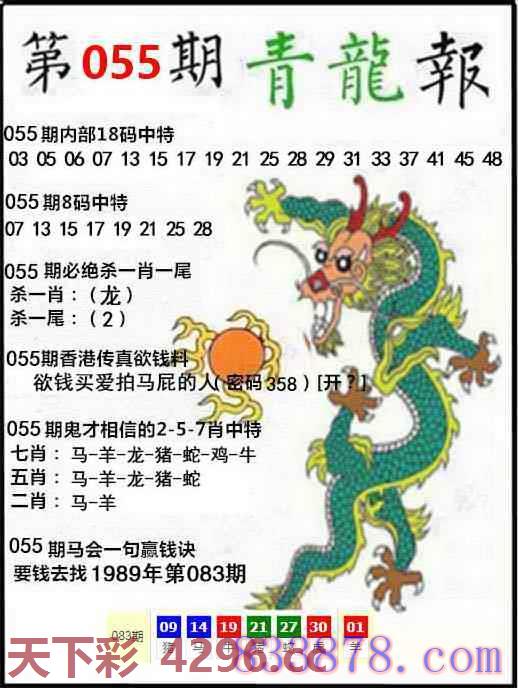 第055期青龍報
055期内部18码中特
03 05 06 07 13 15 17 19 21 25 28 29 31 33 37 41 45 48
055期8码中特
07 13 15 17 19 21 25 28
055期必绝杀一肖一尾
杀一肖：（龙）
杀一尾：（2）
055期香港传真欲钱料
欲钱买爱拍马屁的人（密码358）[开？]
055期鬼才相信的2-5-7肖中特
七肖：马-羊-龙-猪-蛇-鸡-牛
五肖：马-羊-龙-猪-蛇
二肖：马-羊
055期马会一句赢钱诀
要钱去找1989年第083期
083期 09 14 19 21 27 30 01
猪 马 牛 蛇 虎 羊
天下彩 4296.cc
838878.com